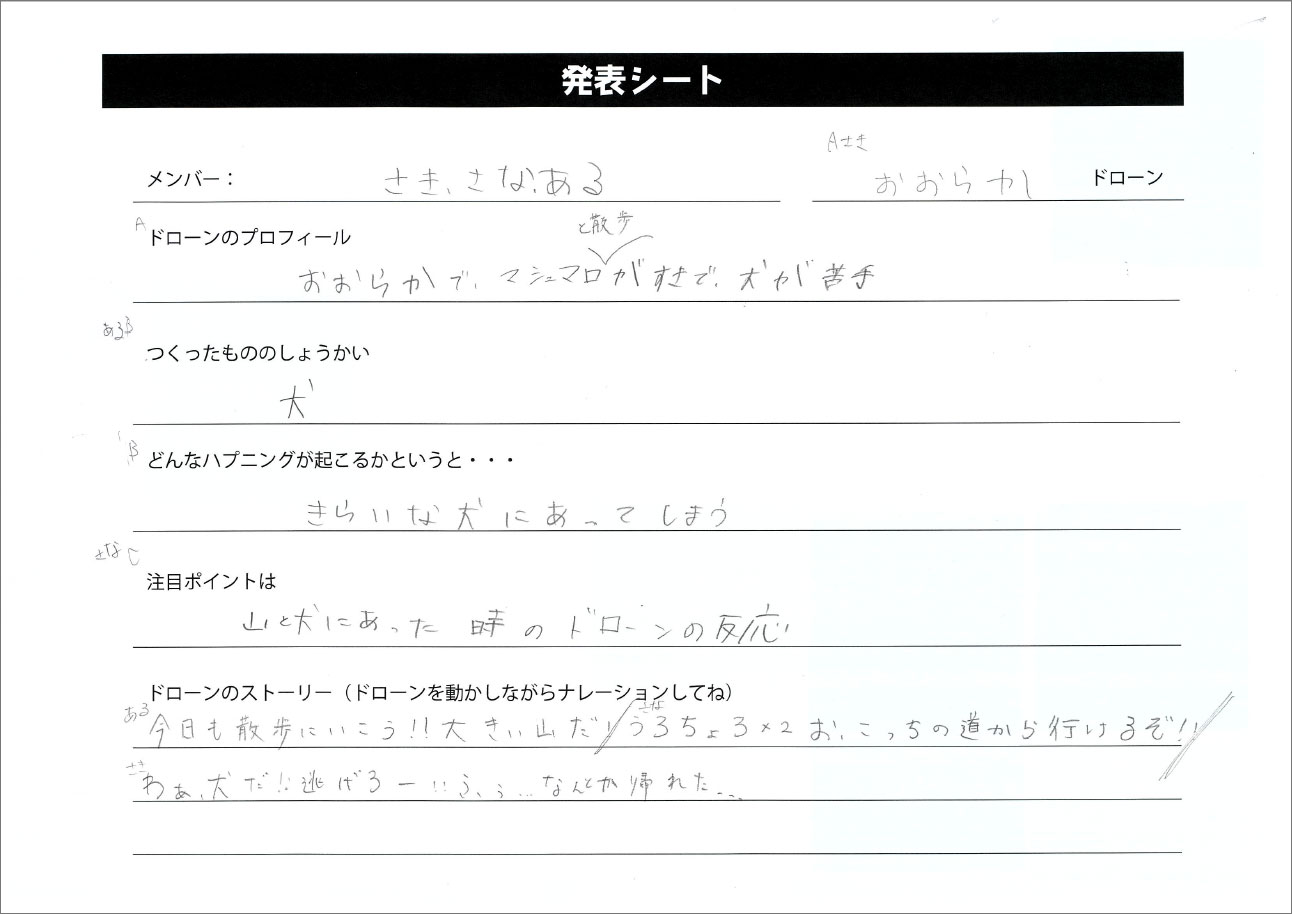 発表シート
Aさき
メンバー： さき、さな、ある おおらかし ドローン
A ドローンのプロフィール
と散歩
おおらかで、マシュマロがすきで、犬が苦手
あるB
つくったもののしょうかい
犬
B どんなハプニングが起こるかというと・・・
きらいな犬にあってしまう
さなC
注目ポイントは
山と犬にあった時のドローンの反応
ドローンのストーリー（ドローンを動かしながらナレーションしてね）
ある さな
今日も散歩にいこう!!大きい山だ!/うろちょろ×2お、こっちの道から行けるぞ!!
さき
わぁ、犬だ!!逃げろー!!ふぅ...なんとか帰れた...